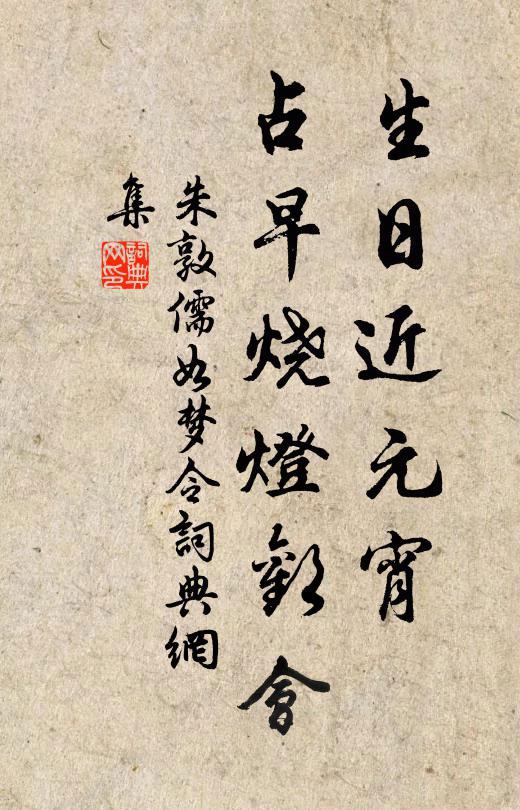 生日近元宵
占早燒燈歡會
朱敦儒如梦令詞典網
集
詞典網印